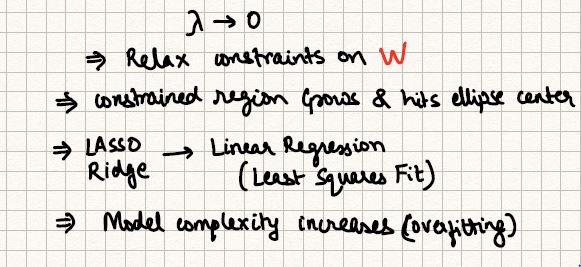 λ → 0
⇒ Relax constraints on W
⇒ constrained region Grows & hits ellipse center
⇒ LASSO Ridge → Linear Regression
(Least Squares Fit)
⇒ Model complexity increases (overfitting)